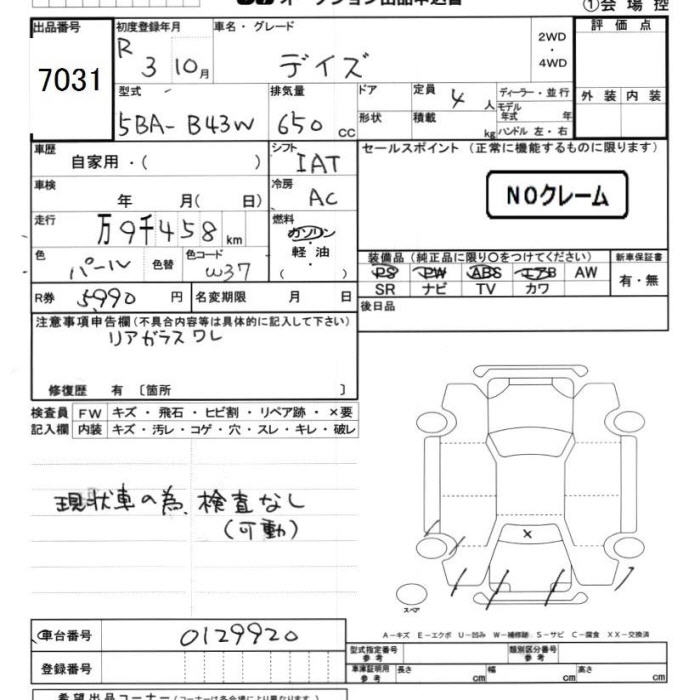 オークション出品申込書
①会場控
出品番号 初度登録年月 車名・グレード 評価点
7031 R 3 10月 デイズ 2WD ・ 4WD
外装 内装
型式 排気量 ドア 定員 4 人 ディーラー・並行
5BA-B43W 650 CC 形状 積載 kg モデル年式 年
ハンドル 左・右
車歴 シフト セールスポイント(正常に機能するものに限ります)
自家用・( ) IAT
車検 冷房 NOクレーム
年 月( 日) AC
走行 燃料
万9千458km ガソリン・軽油・( )
色 色替 色コード 装備品(純正品に限り○をつけてください) 新車保証書
パール W37 PS PW ABS エアB AW 有・無
SR ナビ TV カワ
R券 5,990 円 名変期限 月 日 後日品
注意事項申告欄(不具合内容等は具体的に記入して下さい)
リアガラスワレ
修復歴 有 〔箇所 〕
検査員 FW キズ・飛石・ヒビ割・リペア跡・×要
記入欄 内装 キズ・汚レ・コゲ・穴・スレ・キレ・破レ
現状車の為、検査なし
(可動)
×
スペア
A-キズ E-エクボ U-凹み W-補修跡 S-サビ C-腐食 XX-交換済
車台番号 0129920 型式指定番号 参考 類別区分番号 参考
登録番号 車庫証明用 参考 長さ cm 幅 cm 高さ cm
希望出品コーナー(コーナーは各会場により異なります)